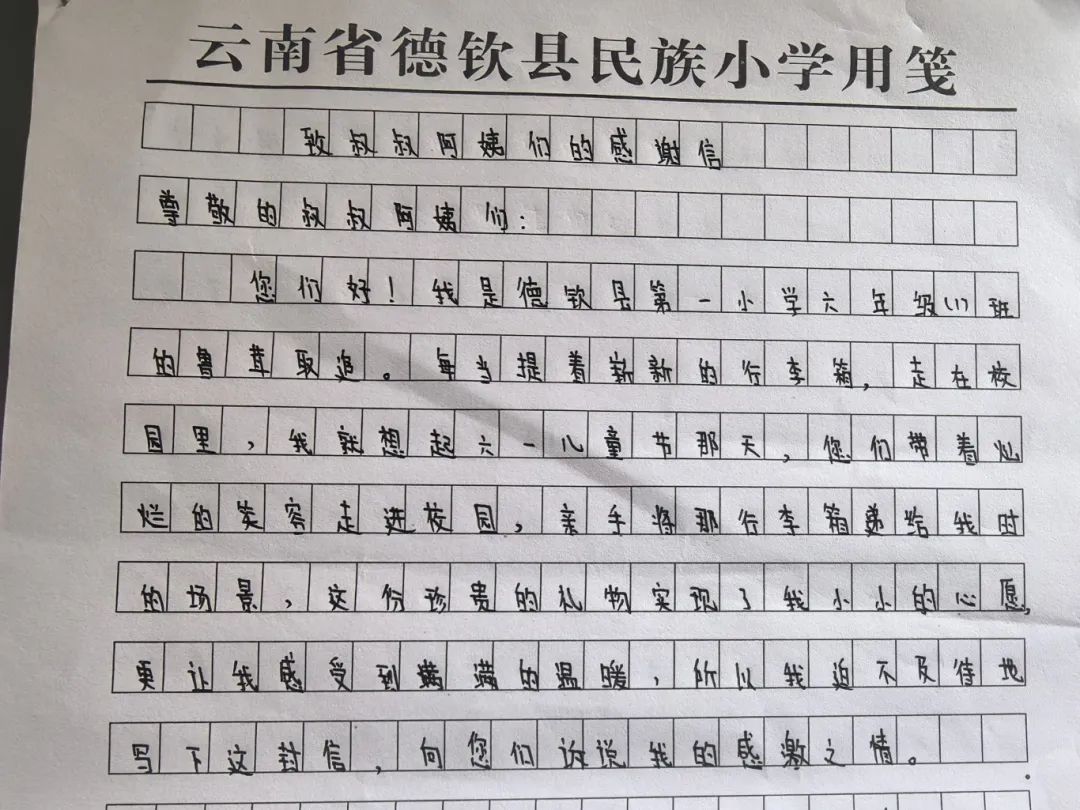 云南省德钦县民族小学用笺
致叔叔阿姨们的感谢信
尊敬的叔叔阿姨们:
您们好!我是德钦县第一小学六年级(1)班
的鲁茸取追。每当提着崭新的行李箱,走在校
园里,我就想起六一儿童节那天,您们带着灿
烂的笑容走进校园,亲手将那行李箱递给我时
的场景,这份珍贵的礼物实现了我小小的心愿,
更让我感受到满满的温暖,所以我迫不及待地
写下这封信,向您们诉说我的感激之情。